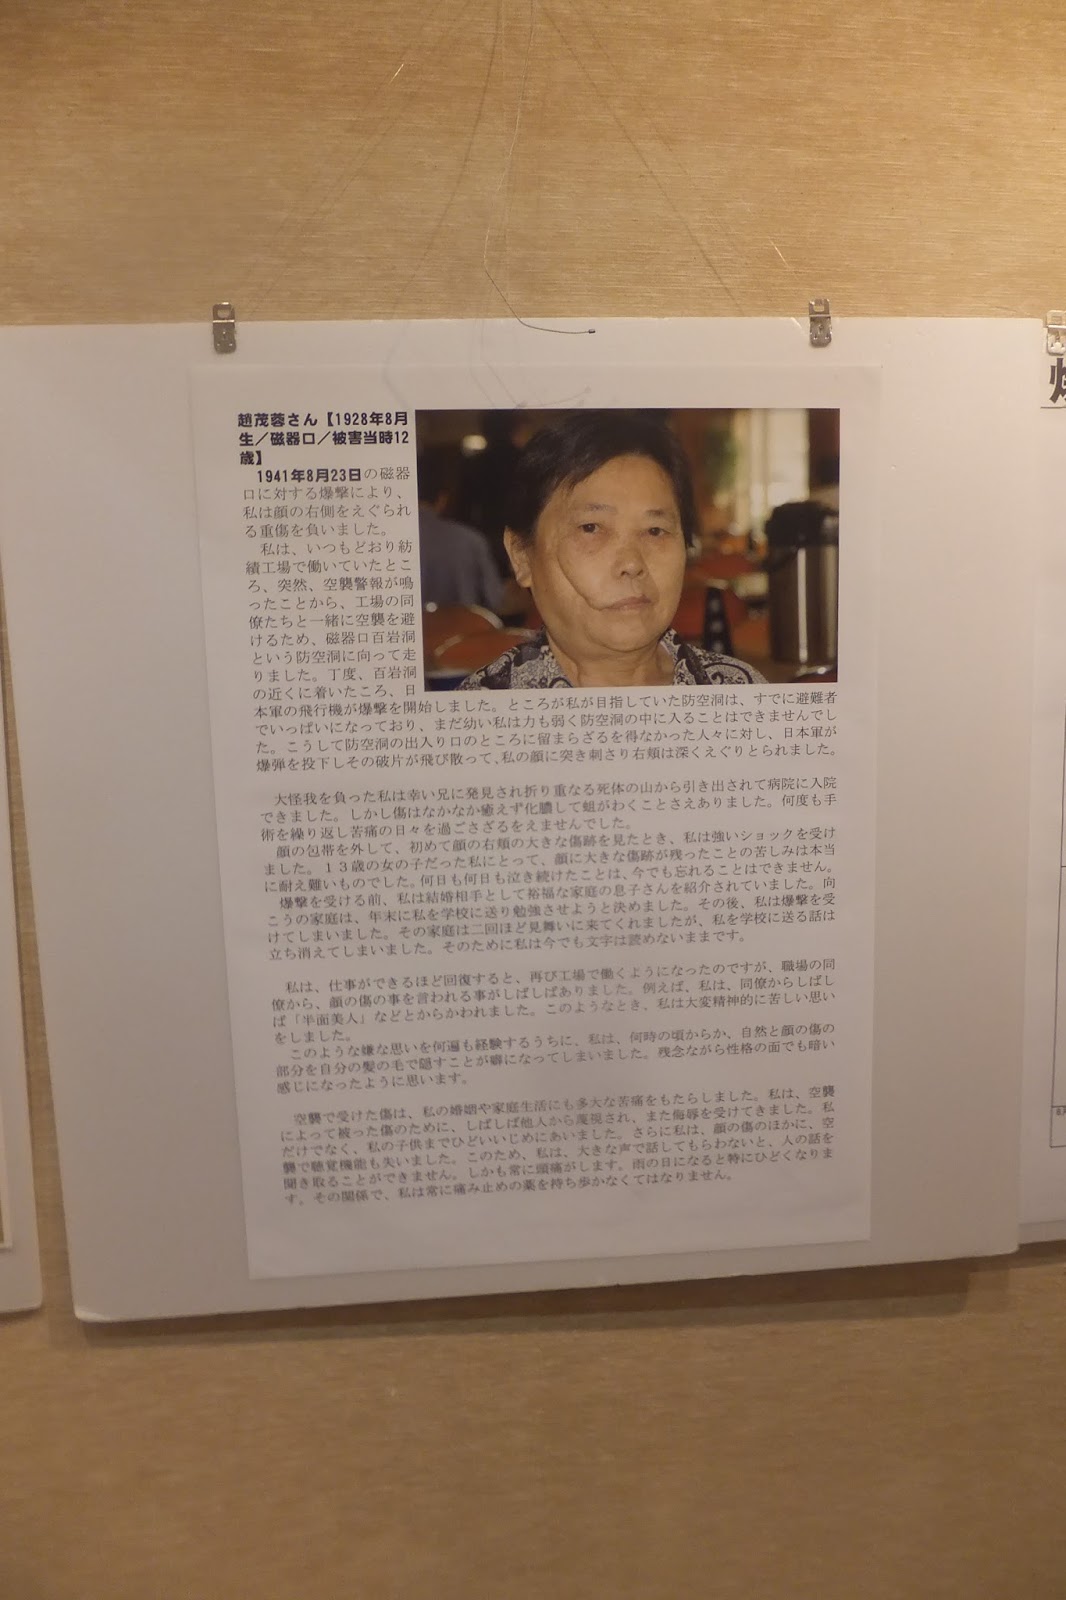 趙茂蓉さん【1928年8月
生／磁器口／被害当時12
歳】
1941年8月23日の磁器
口に対する爆撃により、
私は顔の右側をえぐられ
る重傷を負いました。
私は、いつもどおり紡
績工場で働いていたとこ
ろ、突然、空襲警報が鳴
ったことから、工場の同
僚たちと一緒に空襲を避
けるため、磁器口百岩洞
という防空洞に向って走
りました。丁度、百岩洞
の近くに着いたころ、日
本軍の飛行機が爆撃を開始しました。ところが私が目指していた防空洞は、すでに避難者
でいっぱいになっており、まだ幼い私は力も弱く防空洞の中に入ることはできませんでし
た。こうして防空洞の出入り口のところに留まらざるを得なかった人々に対し、日本軍が
爆弾を投下しその破片が飛び散って、私の顔に突き刺さり右頬は深くえぐりとられました。
大怪我を負った私は幸い兄に発見され折り重なる死体の山から引き出されて病院に入院
できました。しかし傷はなかなか癒えず化膿して蛆がわくことさえありました。何度も手
術を繰り返し苦痛の日々を過ごさざるをえませんでした。
顔の包帯を外して、初めて顔の右頬の大きな傷跡を見たとき、私は強いショックを受け
ました。１３歳の女の子だった私にとって、顔に大きな傷跡が残ったことの苦しみは本当
に耐え難いものでした。何日も何日も泣き続けたことは、今でも忘れることはできません。
爆撃を受ける前、私は結婚相手として裕福な家庭の息子さんを紹介されていました。向
こうの家庭は、年末に私を学校に送り勉強させようと決めました。その後、私は爆撃を受
けてしまいました。その家庭は二回ほど見舞いに来てくれましたが、私を学校に送る話は
立ち消えてしまいました。そのために私は今でも文字は読めないままです。
私は、仕事ができるほど回復すると、再び工場で働くようになったのですが、職場の同
僚から、顔の傷の事を言われる事がしばしばありました。例えば、私は、同僚からしばし
ば「半面美人」などとからかわれました。このようなとき、私は大変精神的に苦しい思い
をしました。
このような嫌な思いを何遍も経験するうちに、私は、何時の頃からか、自然と顔の傷の
部分を自分の髪の毛で隠すことが癖になってしまいました。残念ながら性格の面でも暗い
感じになったように思います。
空襲で受けた傷は、私の婚姻や家庭生活にも多大な苦痛をもたらしました。私は、空襲
によって被った傷のために、しばしば他人から蔑視され、また侮辱を受けてきました。私
だけでなく、私の子供までひどいいじめにあいました。さらに私は、顔の傷のほかに、空
襲で聴覚機能も失いました。このため、私は、大きな声で話してもらわないと、人の話を
聞き取ることができません。しかも常に頭痛がします。雨の日になると特にひどくなりま
す。その関係で、私は常に痛み止めの薬を持ち歩かなくてはなりません。